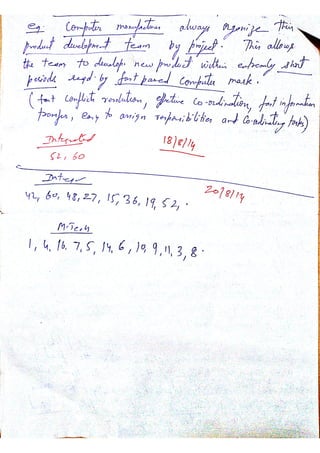 eg. Computer manufacturers always organize their
product development team by project. This allows
the team to develop new product within extremely short
periods reqd. by fast paced computer mark.
(fast conflict resolution, effective co-ordination, fast information
transfer, easy to assign responsibilities and co-ordinating tasks)
Integrated 18/8/14
52, 60
Integr 20/8/14
42, 60, 48, 27, 15, 36, 19, 52, .
M.Tech
1, 4, 16, 7, 5, 14, 6, 10, 9, 11, 3, 8 .